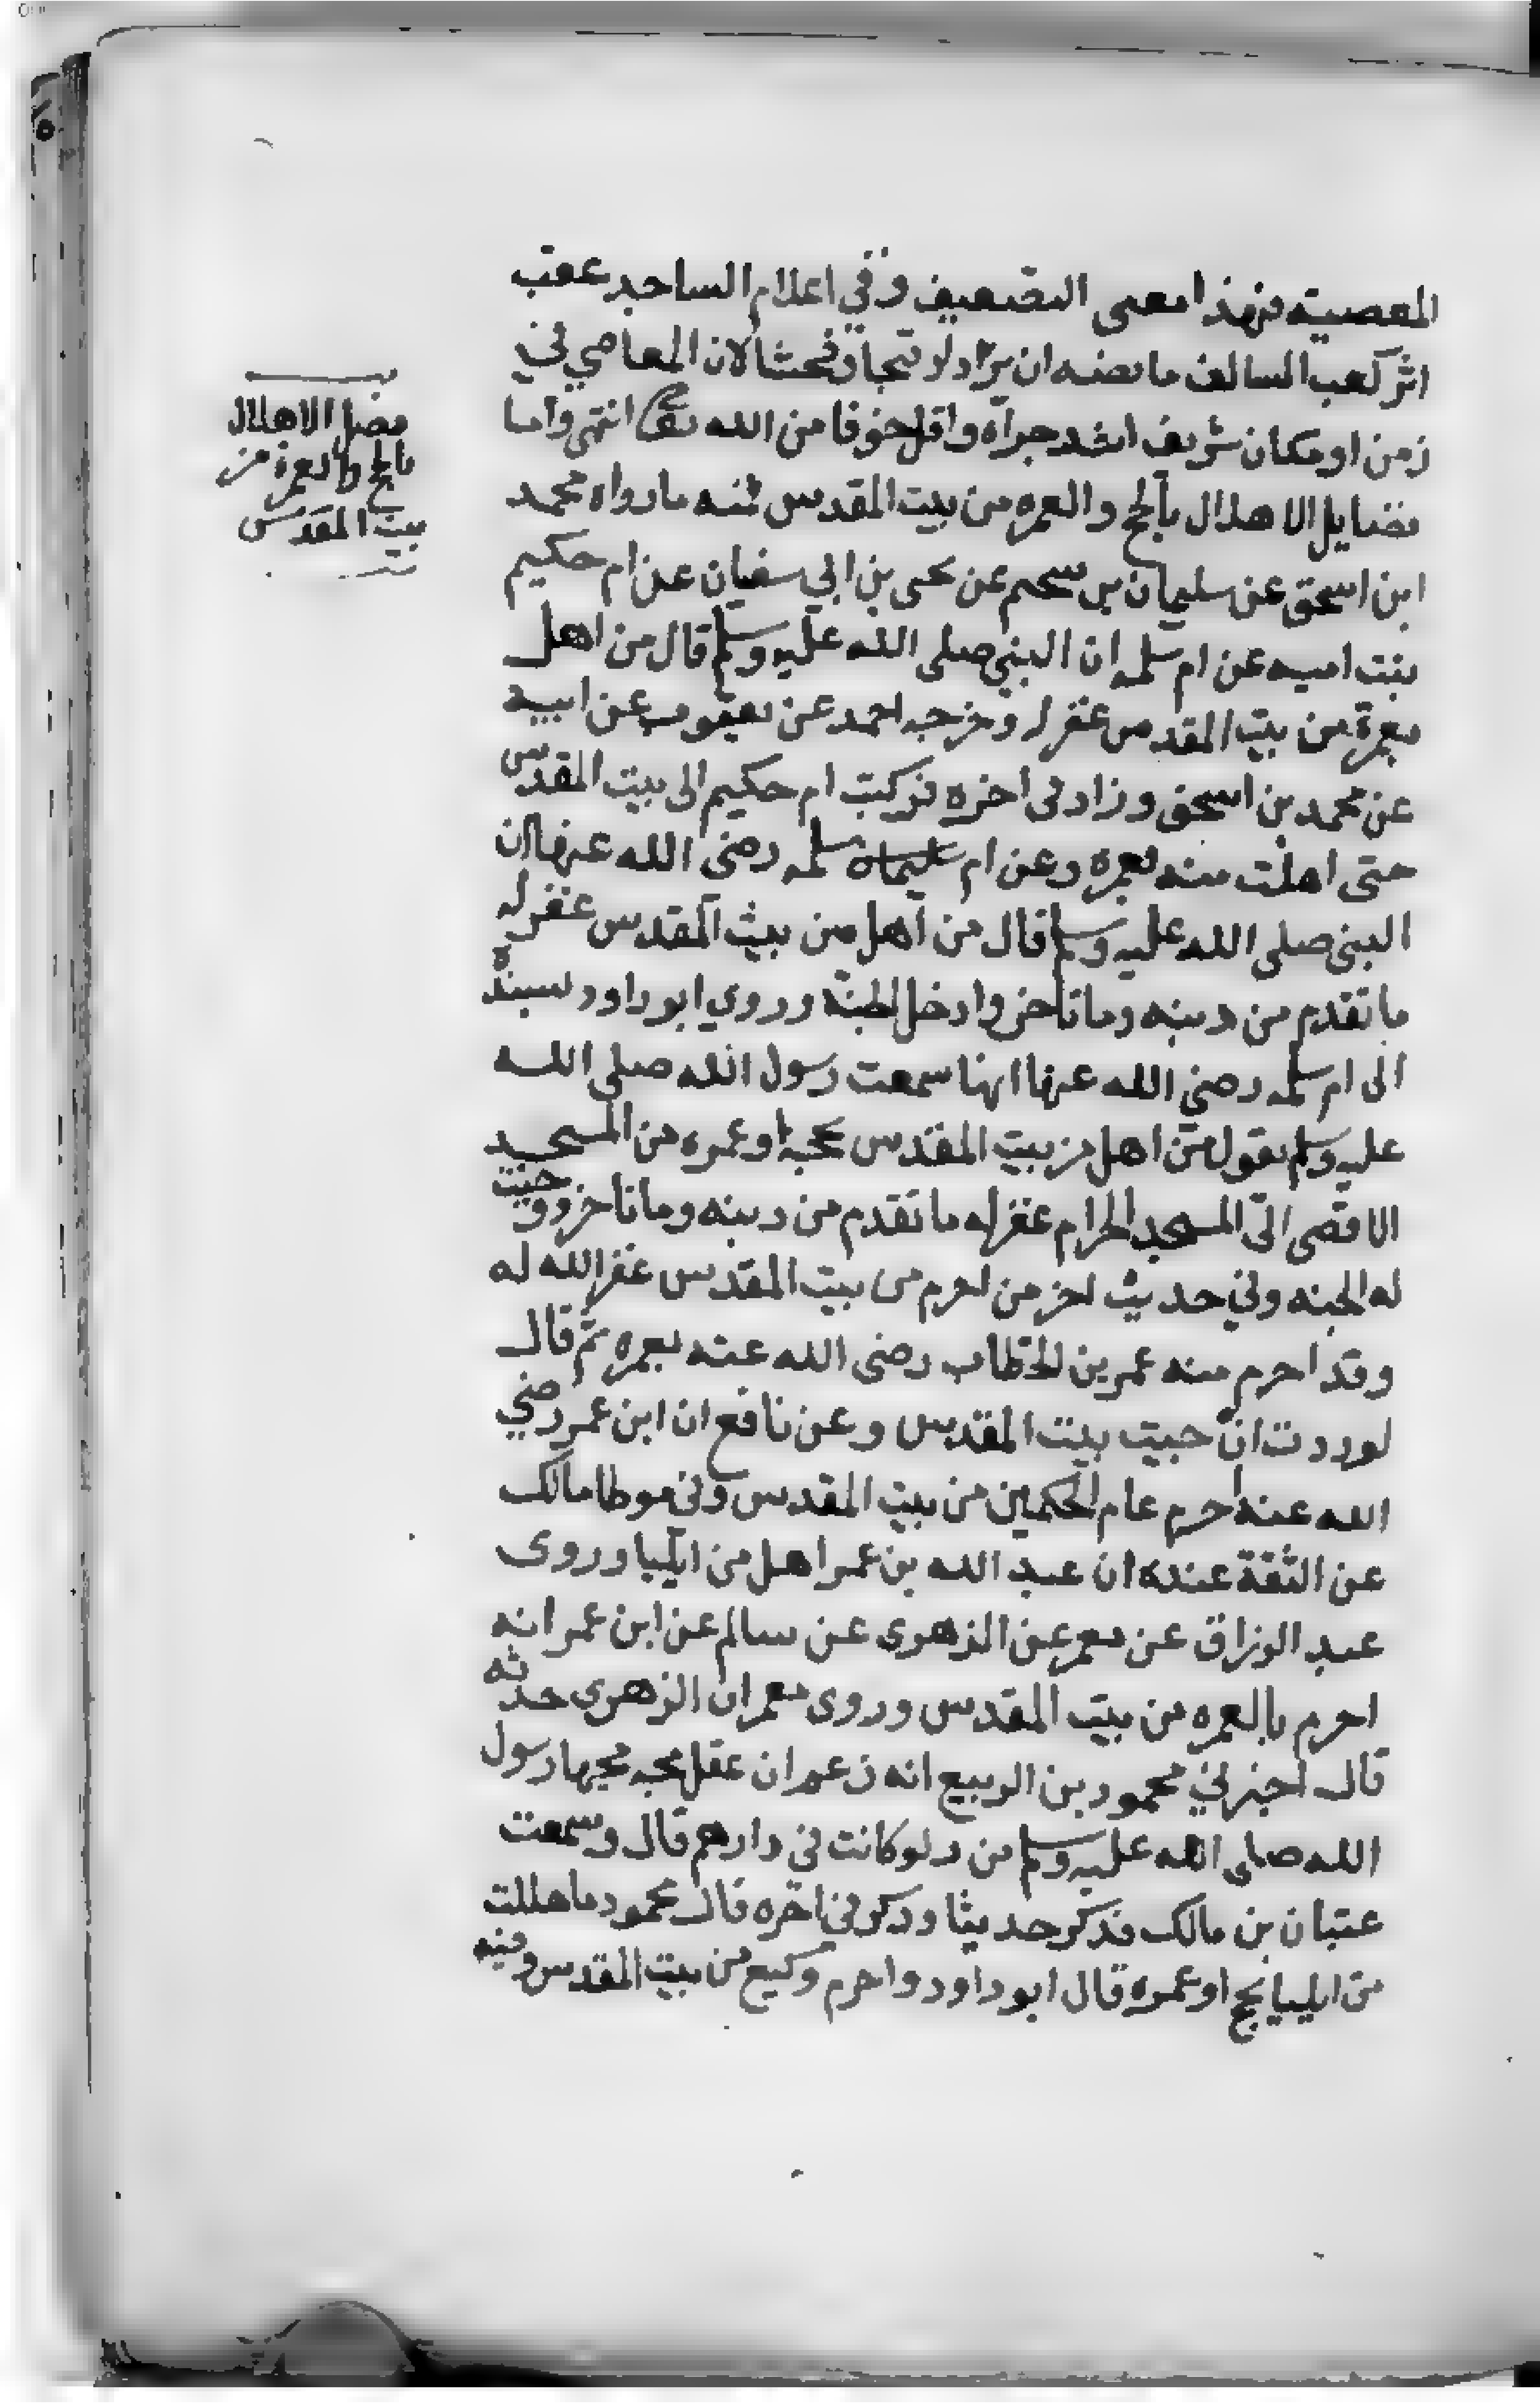 المعصية فهذا معنى التضعيف وفي اعلام الساجد عقب
اثر كعب السالف ما نصه ان يزاد لو تجاو فحشا لان المعاصي في
زمن او مكان شريف اشد جرأه واقل خوفا من الله تعالى انتهى واما
فضايل الاهلال بالحج والعمره من بيت المقدس فمنه ما رواه محمد
ابن اسحق عن سليمان بن سحيم عن يحيى بن ابي سفيان عن ام حكيم
بنت اميه عن ام سلمه ان النبي صلى الله عليه وسلم قال من اهل
بعمرة من بيت المقدس غفر له وخرجه احمد عن يعقوب عن ابيه
عن محمد بن اسحق وزاد في اخره فركبت ام حكيم الى بيت المقدس
حتى اهلت منه بعمره وعن ام سلمه رضي الله عنها ان
النبي صلى الله عليه وسلم قال من اهل من بيت المقدس غفر له
ما تقدم من دنبه وما تاخر وادخل الجنة وروي ابو داود بسنده
الى ام سلمه رضي الله عنها انها سمعت رسول الله صلى الله
عليه وسلم يقول من اهل من بيت المقدس بحجه او عمره من المسجد
الاقصى الى المسجد الحرام غفر له ما تقدم من دنبه وما تاخر ووجبت
له الجنه وفي حديث اخر من احرم من بيت المقدس غفر الله له
وقد احرم منه عمر بن الخطاب رضي الله عنه بعمره ثم قال
لوددت ان جيت بيت المقدس وعن نافع ان ابن عمر رضي
الله عنه احرم عام الحكمين من بيت المقدس وفي موطا مالك
عن الثقة عنده ان عبد الله بن عمر اهل من ايليا وروى
عبد الرزاق عن معمر عن الزهري عن سالم عن ابن عمر انه
احرم بالعمره من بيت المقدس وروى معمر ان الزهري حدثه
قال اخبرني محمود بن الربيع انه زعم ان عقل مجه مجها رسول
الله صلى الله عليه وسلم من دلو كانت في دارهم قال وسمعت
عتبان بن مالك فذكر حديثا وذكر في اخره قال محمود فاهللت
من ايليا بحج او عمره قال ابو داود واحرم وكيع من بيت المقدس ومنه
فضل الاهلال
بالحج والعمرة من
بيت المقدس